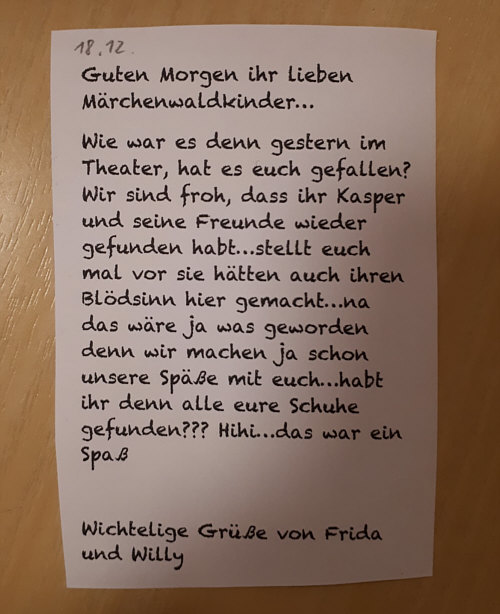 18.12.
Guten Morgen ihr lieben
Märchenwaldkinder...
Wie war es denn gestern im
Theater, hat es euch gefallen?
Wir sind froh, dass ihr Kasper
und seine Freunde wieder
gefunden habt...stellt euch
mal vor sie hätten auch ihren
Blödsinn hier gemacht...na
das wäre ja was geworden
denn wir machen ja schon
unsere Späße mit euch...habt
ihr denn alle eure Schuhe
gefunden??? Hihi...das war ein
Spaß
Wichtelige Grüße von Frida
und Willy